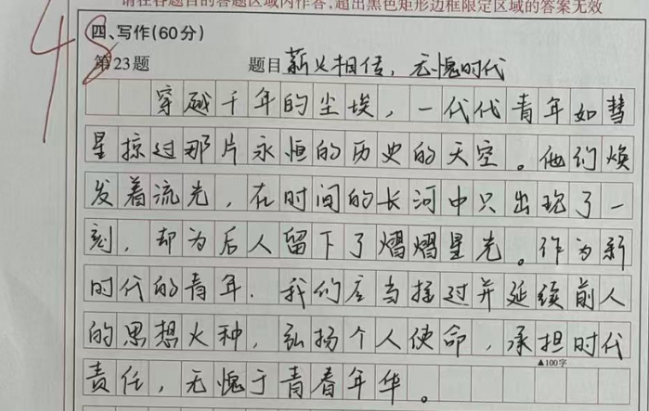 请在各题目的答题区域内作答,超出黑色矩形边框限定区域的答案无效
48
四、写作(60分)
第23题 题目 薪火相传,无愧时代
穿越千年的尘埃,一代代青年如彗
星掠过那片永恒的历史的天空。他们焕
发着流光,在时间的长河中只出现了一
刻,却为后人留下了熠熠星光。作为新
时代的青年.我们应当接过并延续前人
的思想火种,弘扬个人使命,承担时代
▲100字
责任,无愧于青春年华。